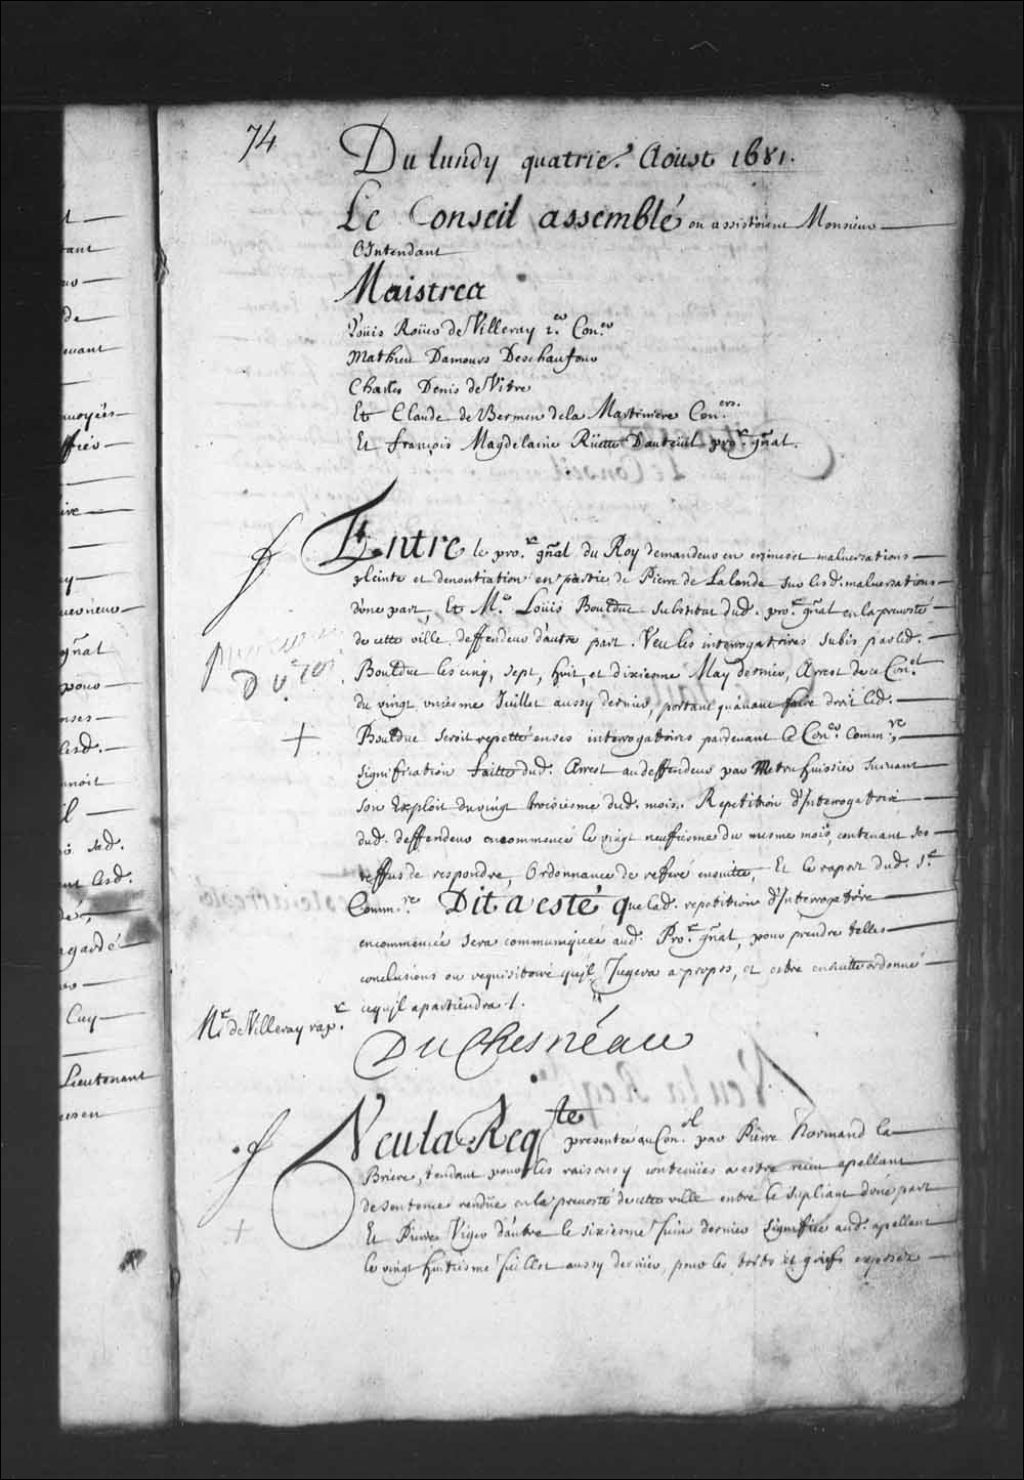 74
Du lundy quatrie.^e Aoust 1681.
Le Conseil assemblé ou assistoient Monsieur
L'Intendant
Maistres
Loüis Roüer de Villeray 1.^er Con.^er
Mathieu Damours Deschaufour
Charles Denis de Vitre
Et Claude de Bermen dela Martiniere Con.^ers.
Et françois Magdelaine Rüette Dauteüil pro.^r gñal.
Entre le pro.^r gñal du Roy demandeur en crimes et maluersations
pleinte et denontiation en partie de Pierre de Lalande sur lesd. maluersations
d'une part, Et M.^e Loüis Boulduc substitut dud. pro.^r gñal en la preuosté
de cette ville deffendeur d'autre part. Veu les interrogatoires subis par led.
Boulduc les cinq, sept, huit, et dixiesme May dernier, Arrest de ce Con.^el
du vingt vniesme Juillet aussy dernier, portant qu'auant faire droit led.
Boulduc seroit repetté en ses interrogatoires pardeuant le Con.^er Comm.^re,
signification faitte dud. Arrest au deffendeur par Metru huissier suiuant
son Exploit du vingt troisiesme dud. mois. Repetition d'Interrogatoire
dud. deffendeur encommencé le vingt neufiesme du mesme mois, contenant ses
reffus de respondre, Ordonnance de referé ensuitte, Et le raport dud. S.^r
Comm.^re Dit a esté que lad. repetition d'Interrogatoire
encommencée sera communiquée aud. Pro.^r gñal, pour prendre telles
conclusions ou requisitoire qu'jl Jugera a propos, et estre ensuitte ordonné
ce qu'jl apartiendra ./.
M.^r de Villeray rap.^r
DuChesneau
Veu la Req.^te presentée au Con.^el par Pierre Normand La
Briere, tendant pour les raisons y contenües a estre receu apellant
de sentence rendüe en la preuosté de cette ville entre le supliant d'une part
Et Pierre Viger d'autre le sixiesme Juin dernier signiffiée aud. apellant
le vingt huitiesme Juillet aussy dernier, pour les torts et griefs exposez